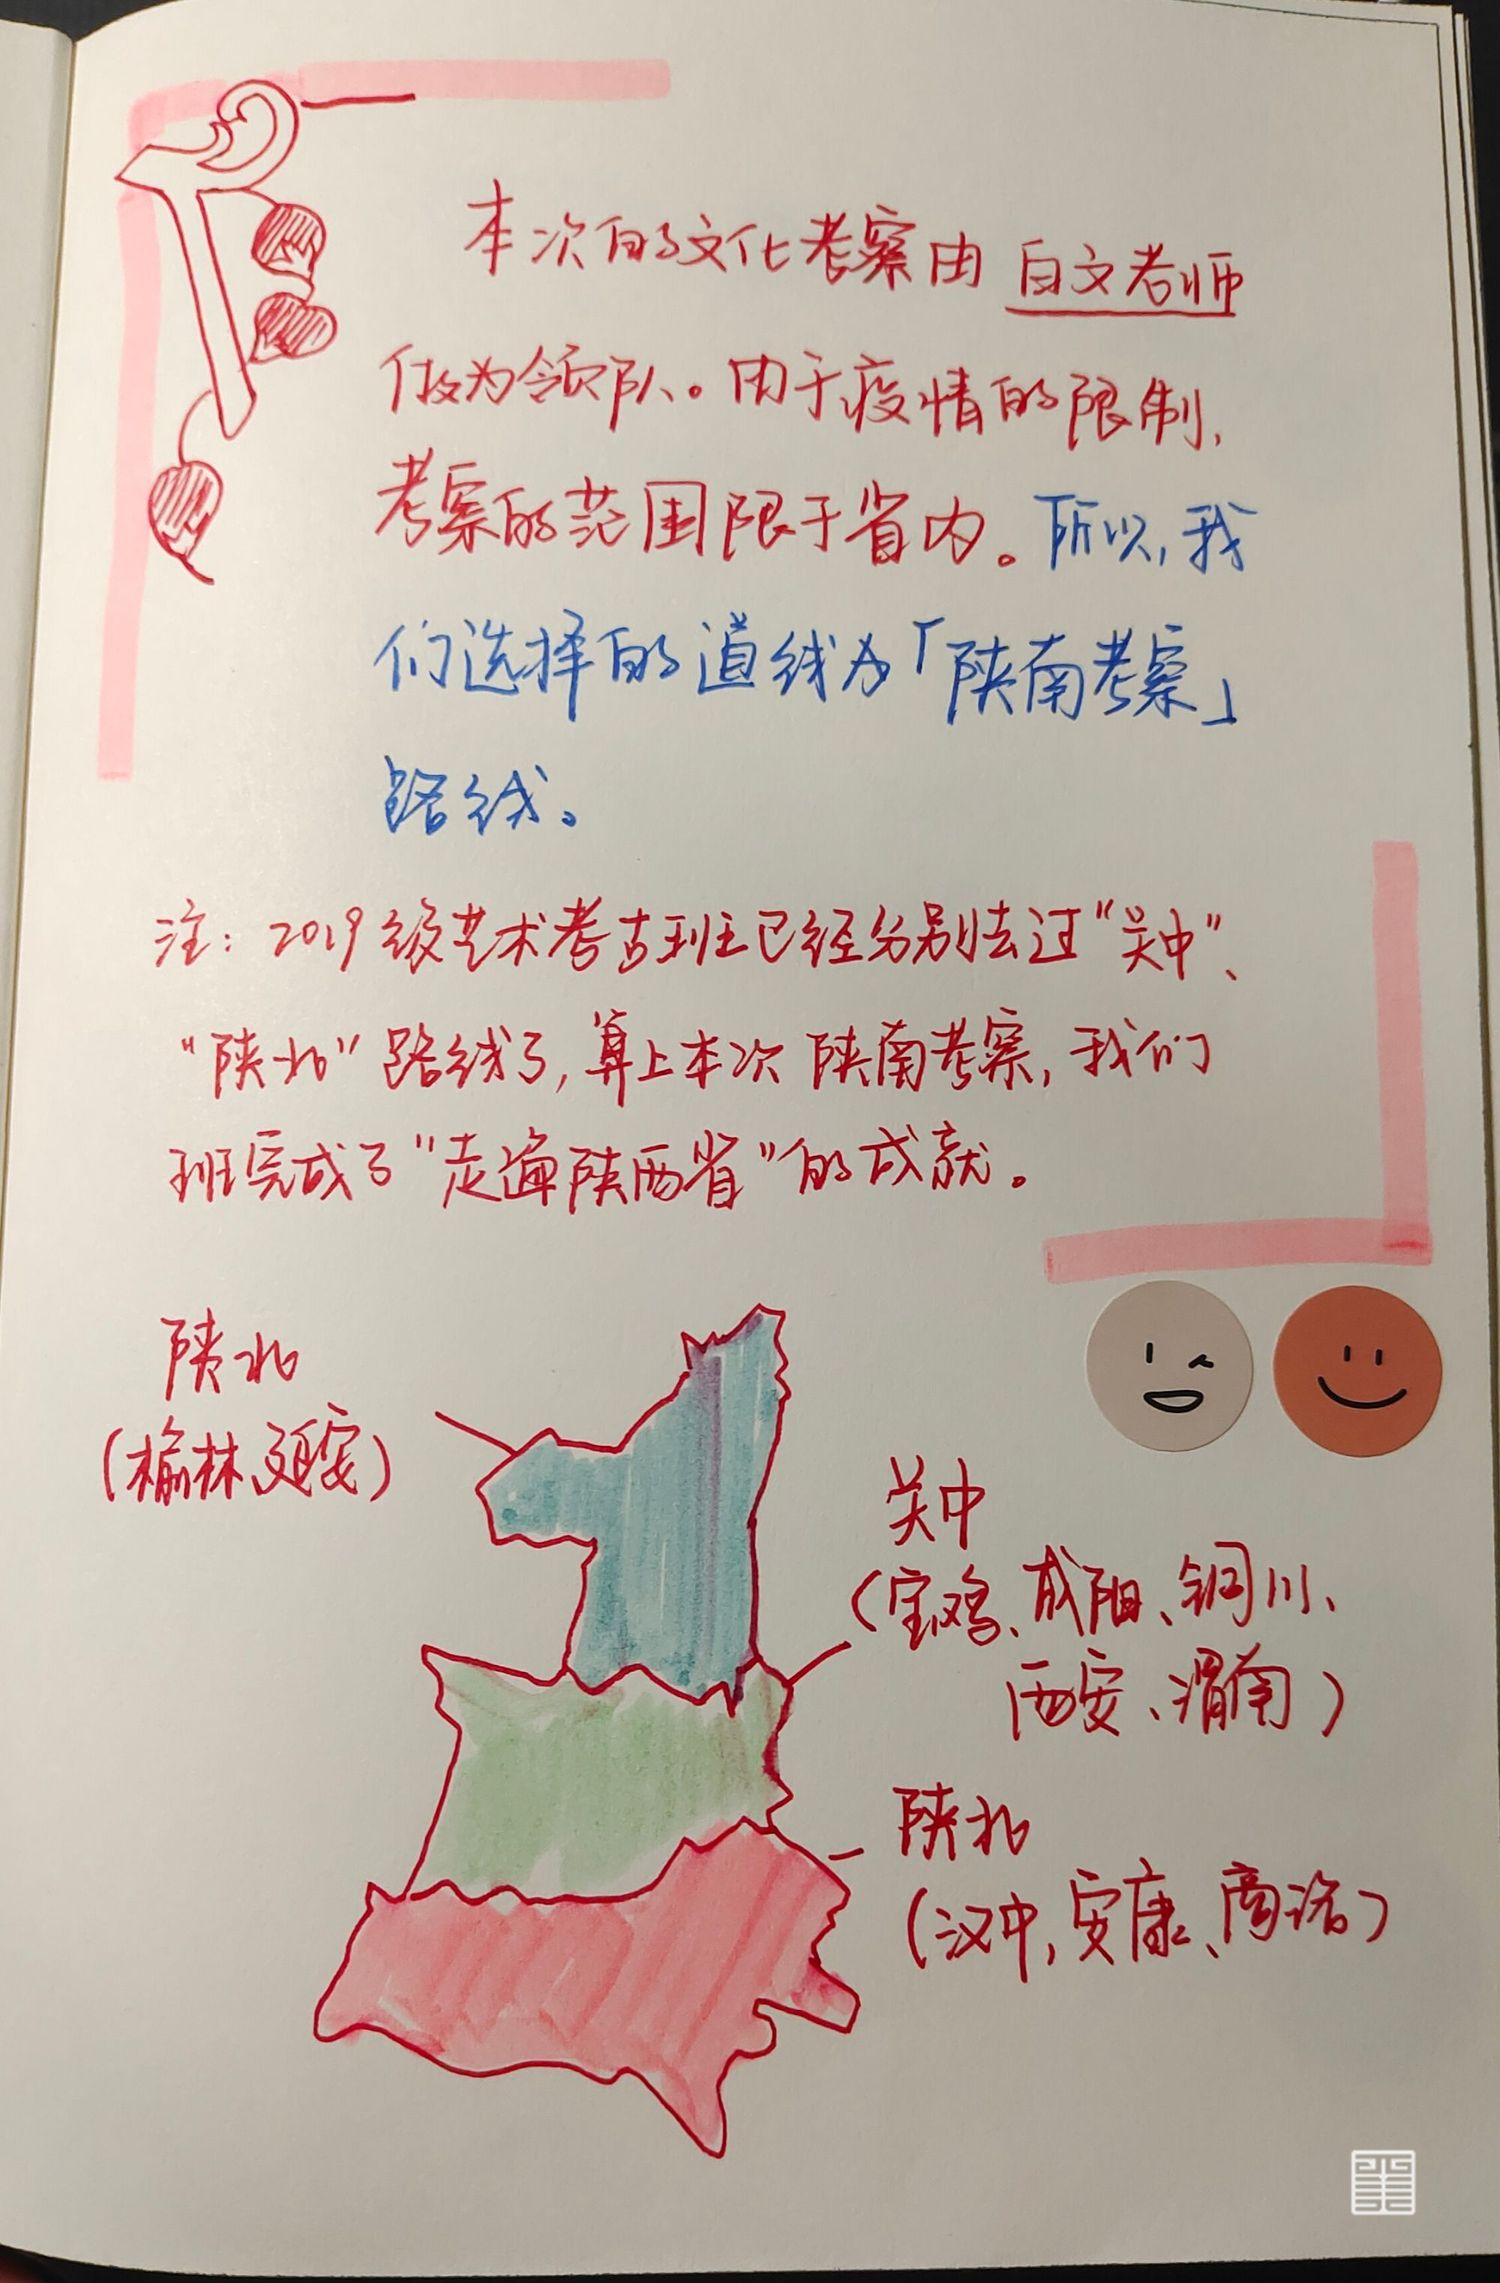 本次的文化考察由白文老师
做为领队。由于疫情的限制,
考察的范围限于省内。所以,我
们选择的道线为「陕南考察」
路线。
注：2019级艺术考古班已经分别去过"关中"、
"陕北"路线了,算上本次陕南考察,我们
班完成了"走遍陕西省"的成就。
陕北
(榆林、延安)
关中
(宝鸡、咸阳、铜川、
西安、渭南)
陕北
(汉中,安康、商洛)